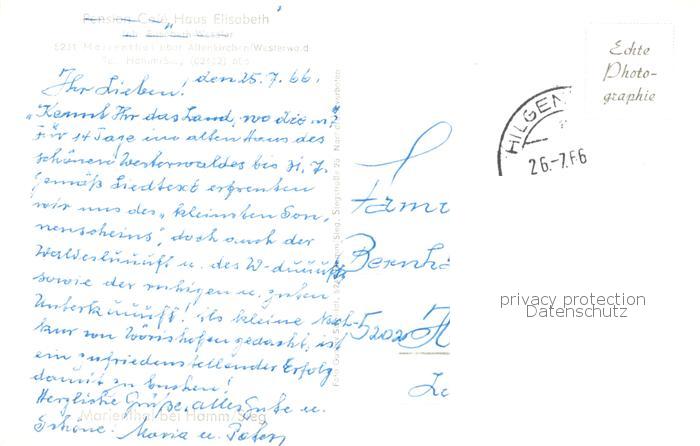 Pension Café Haus Elisabeth
5231 Marienthal über Altenkirchen/Westerwald
Ihr Lieben! den 25.7.66.
"Kennt Ihr das Land, wo die
Für 14 Tage im alten Haus des
schönen Westerwaldes bis 31.7.
gemäß Liedtext erfreuten
wir uns des "kleinsten Son-
nenscheins", doch auch der
Walderluuuft u. des W-duuufts
sowie der ruhigen u. guten
Unterkuuuft! Als kleine Nach-
kur von Wörishofen gedacht, ist
ein zufriedenstellender Erfolg
damit zu buchen!
Herzliche Grüße, alles Gute u.
Schöne! Maria u. Peter
Marienthal bei Hamm/Sieg
Echte
Photo-
graphie
HILGEN
26.-7.66
Fami
Bernh
5202
privacy protection
Datenschutz